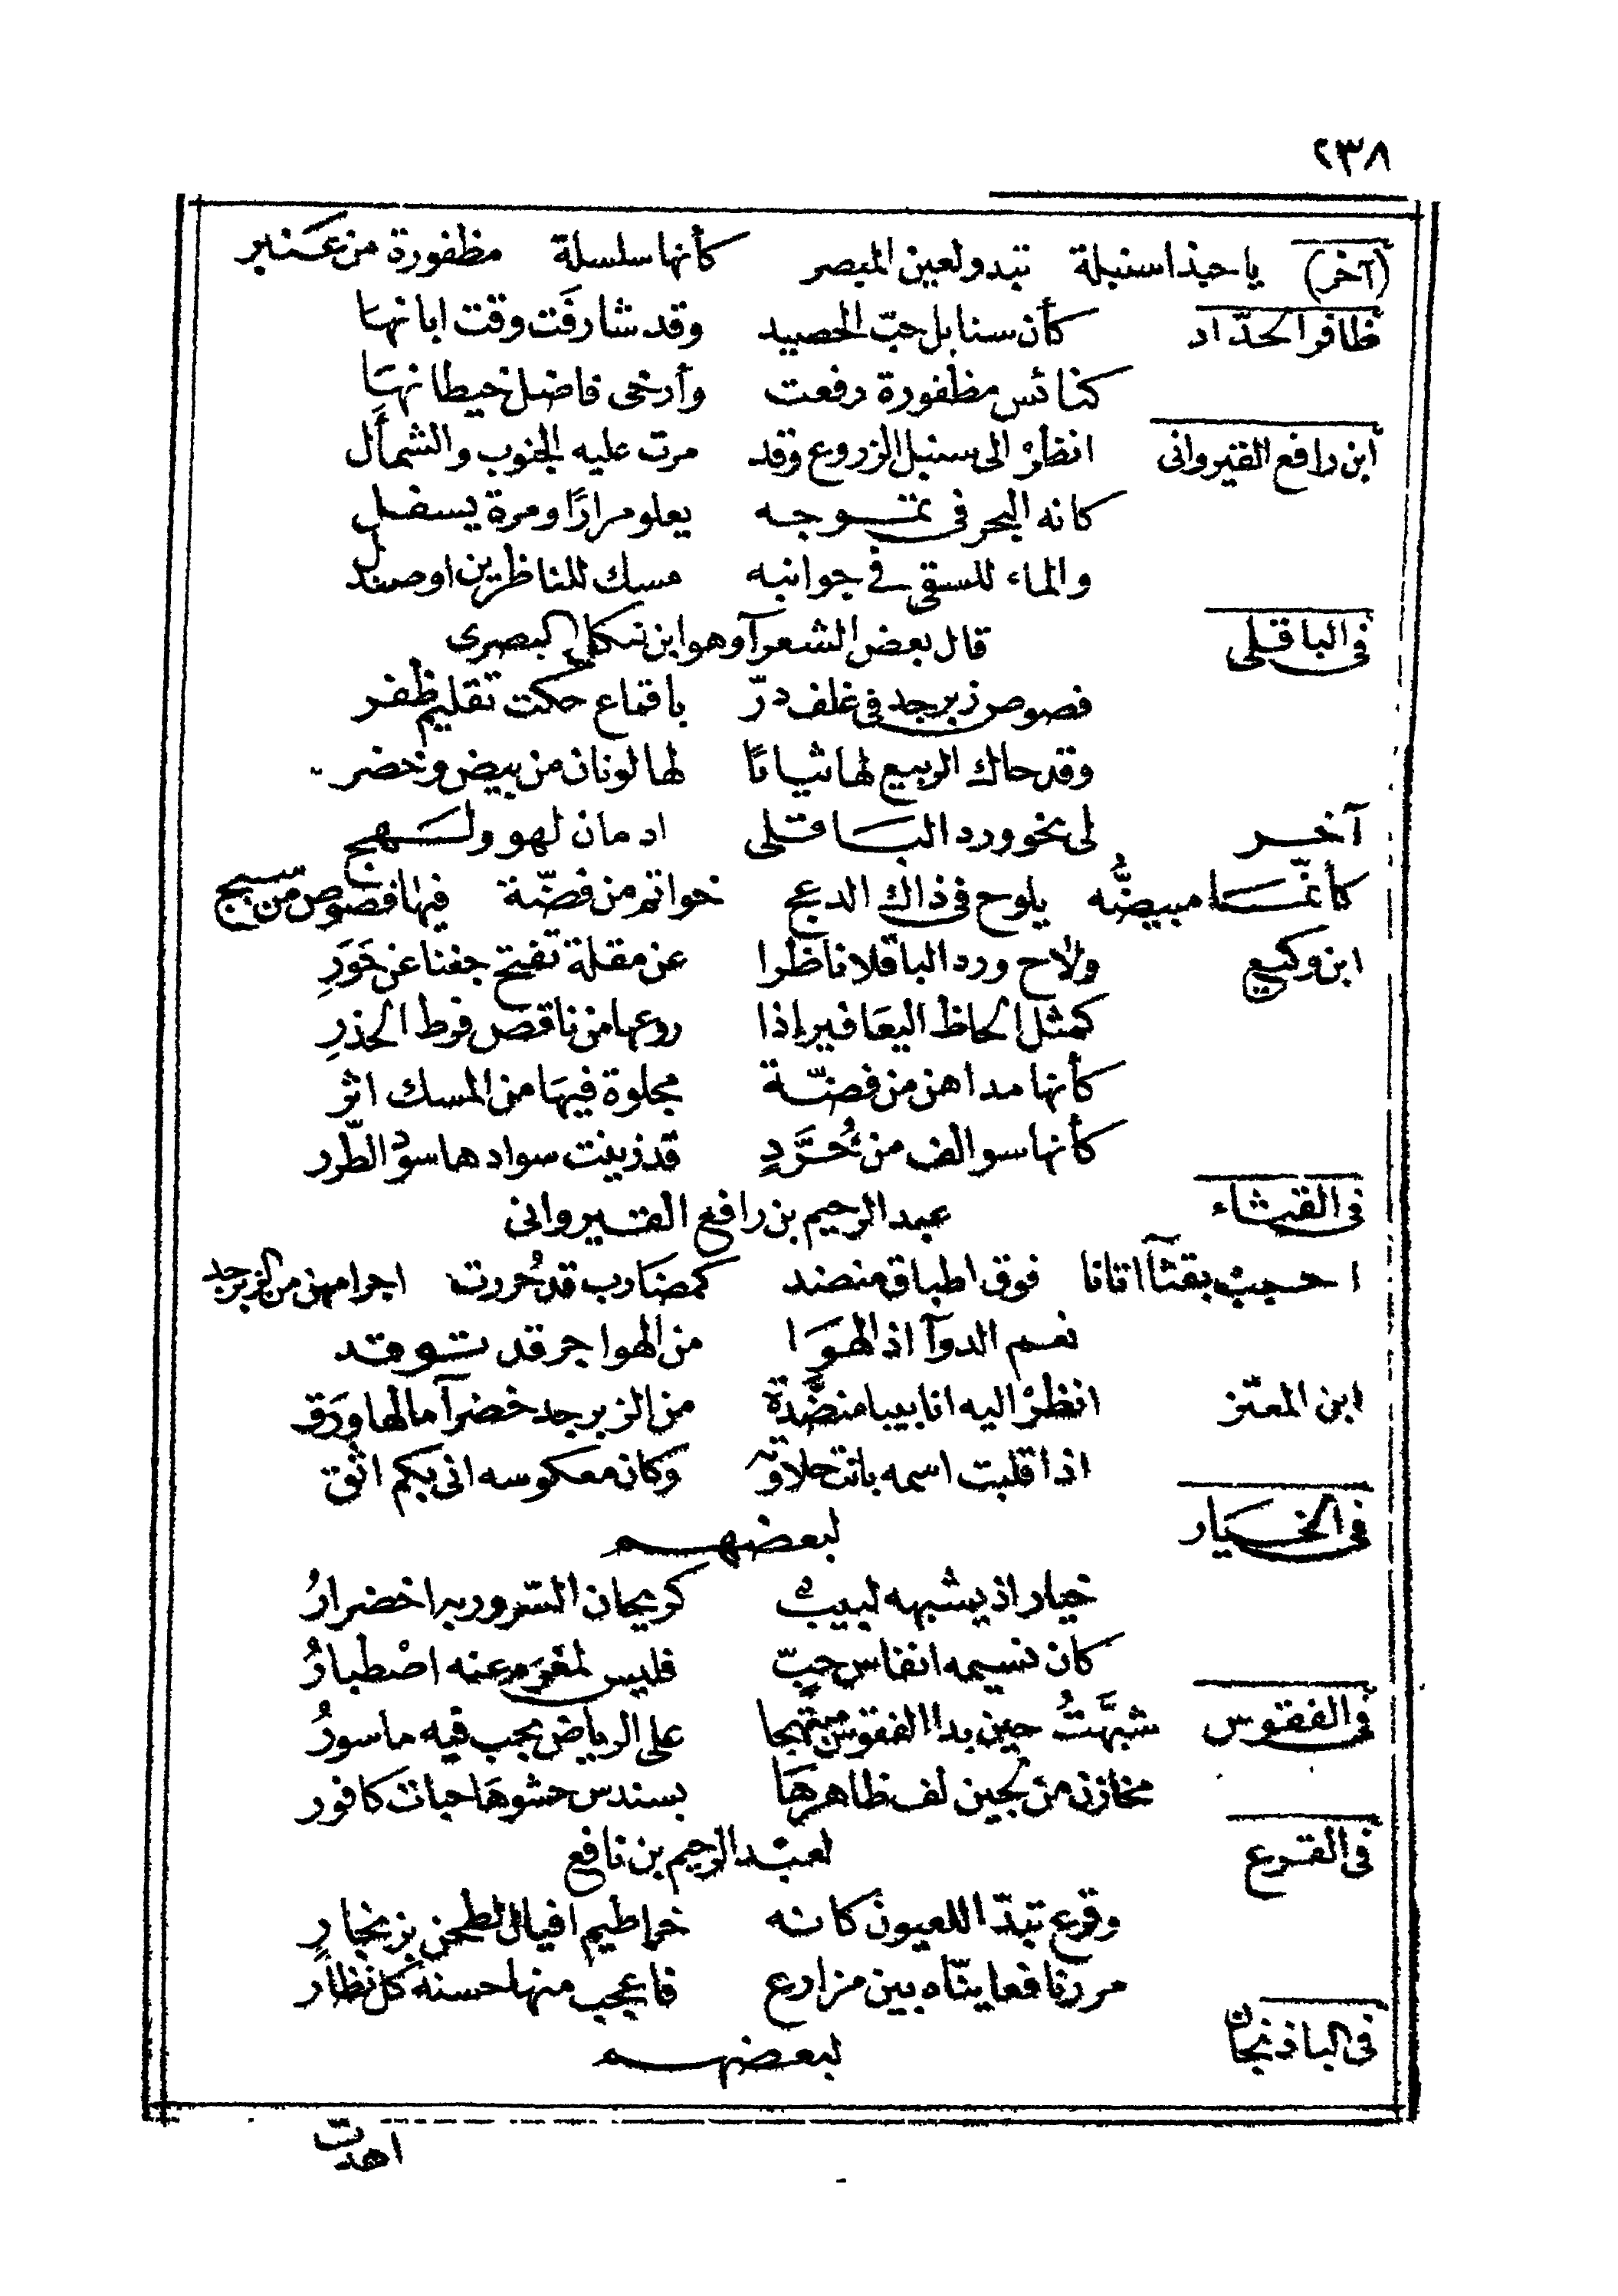 ٢٣٨
(آخر) يا حبذا سنبلة تبدو لعين المبصر كأنها سلسلة مظفورة من عنبر
ظافر الحدّاد كأن سنابل حبّ الحصيد وقد شارفَت وقت ابانها
كنائس مظفورة رفعت وأرخى فاضل خيطانها
ابن رافع القيروانى انظرْ الى سنبل الزروع وقد مرت عليه الجنوب والشمأَل
كانه البحر فى تموجه يعلو مرارًا ومرة يسفل
والماء للسقى فى جوانبه مسك للناظرين او صندل
فى الباقلى قال بعض الشعرآ وهو ابن نكل البصرى
فصوص زبرجد فى غلف درّ باقماع حكت تقليم ظفر
وقد حاك الربيع لها ثيابًا لها لونان من بيض وخضر
آخر لى نحو ورد الباقلى ادمان لهو ولهج
كأنّما مبيضُّه يلوح فى ذاك الدعج خواتم من فضّة فيها فصوص من سبج
ابن وكيع ولاح ورد الباقلا ناظرا عن مقلة تفتح جفنا عن حَوَرِ
كمثل الحاظ اليعَافير إذا روعها من ناقص فرط الحذرِ
كأنها مداهن من فضّة مجلوة فيهَا من المسك اثر
كأنها سوالف من خُرَّدٍ قد زينت سوادها سودُ الطّرر
فى القثاء عبد الرحيم بن رافع القيروانى
احبب بقثآ اتانا فوق اطباق منضد كمضارب قد حُررت اجرامهن من الزبرجد
نعم الدوآ اذ الهوَا من الهواجر قد توقد
ابن المعتز انظرْ اليه انابيبا منضَّدة من الزبرجد خضرآ مالها ورَق
اذا قلبت اسمه بانت حلاوته وكان معكوسه انى بكم اثق
فى الخيار لبعضهم
خيار اذ يشبهه لبيب كريحان السّرور به اخضرارُ
كان نسيمه انفاس حبّ فليس لمغرَم عنه اصْطبارُ
فى الفقوس شبهَّتُ حين بدا الفقوس مبتهجا على الرياض بجب فيه ماسورُ
مخازن من لجين لف ظاهرهَا بسندس حشوهَا حبات كافور
فى القرع لعبد الرحيم بن نافع
وقرع تبدّا للعيون كانه خراطيم افيال لطخن بزنجارِ
مررنا فعاينّاه بين مزارع فاعجب منها حسنه كل نظار
فى الباذنجان لبعضهم
اهدت